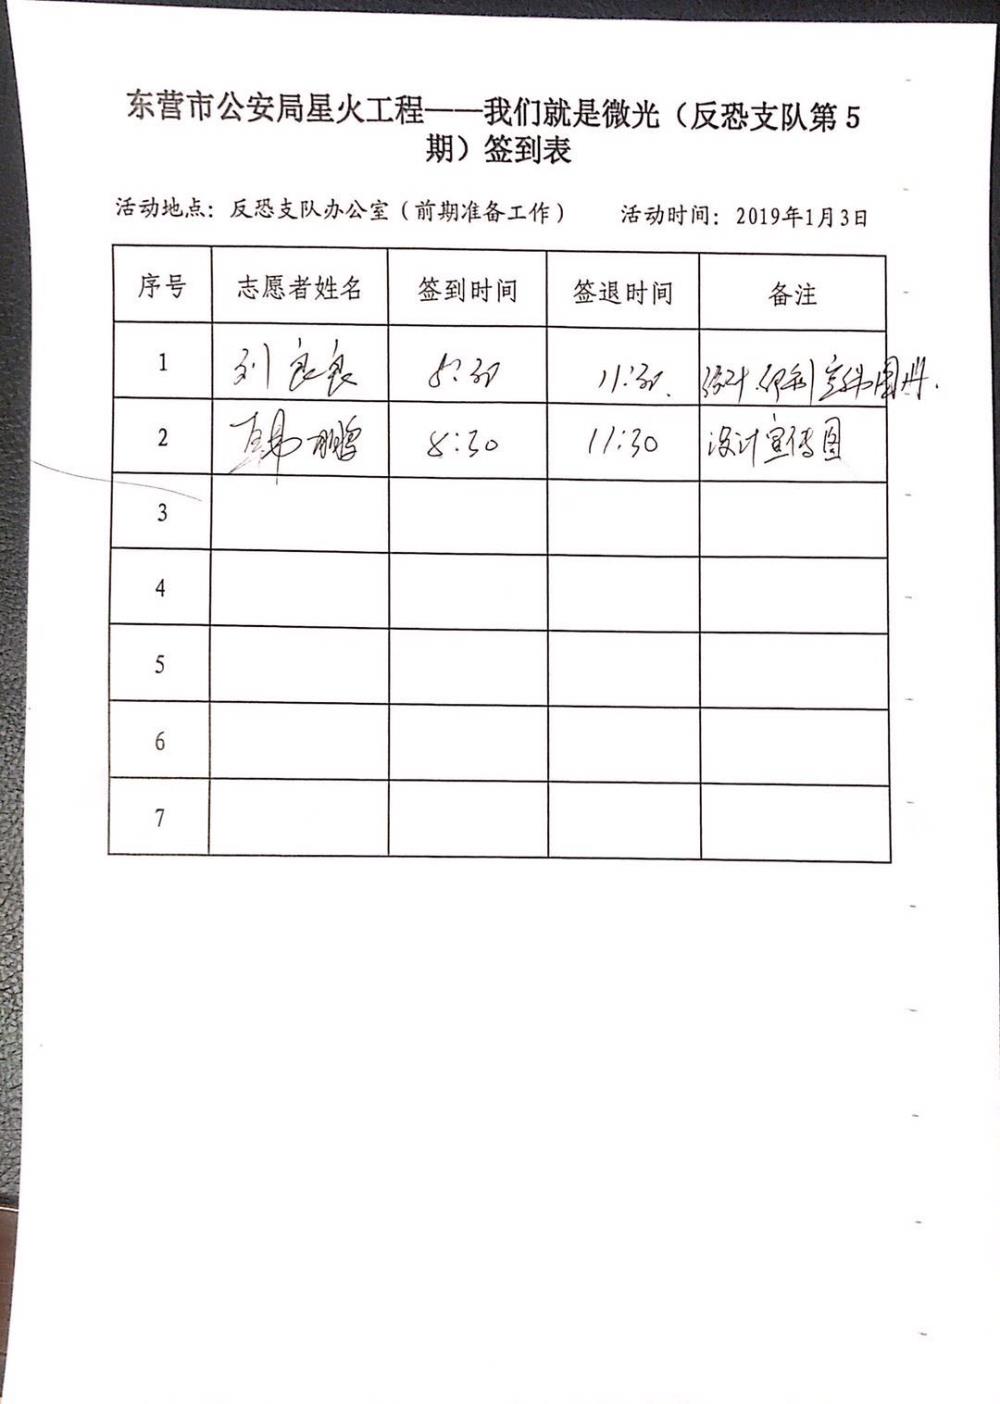 东营市公安局星火工程——我们就是微光（反恐支队第5
期）签到表
活动地点：反恐支队办公室（前期准备工作） 活动时间：2019年1月3日
序号 志愿者姓名 签到时间 签退时间 备注
1 刘良良 8:30 11:30. 设计.印刷宣传图册.
2 韩鹏 8:30 11:30 设计宣传图
3
4
5
6
7